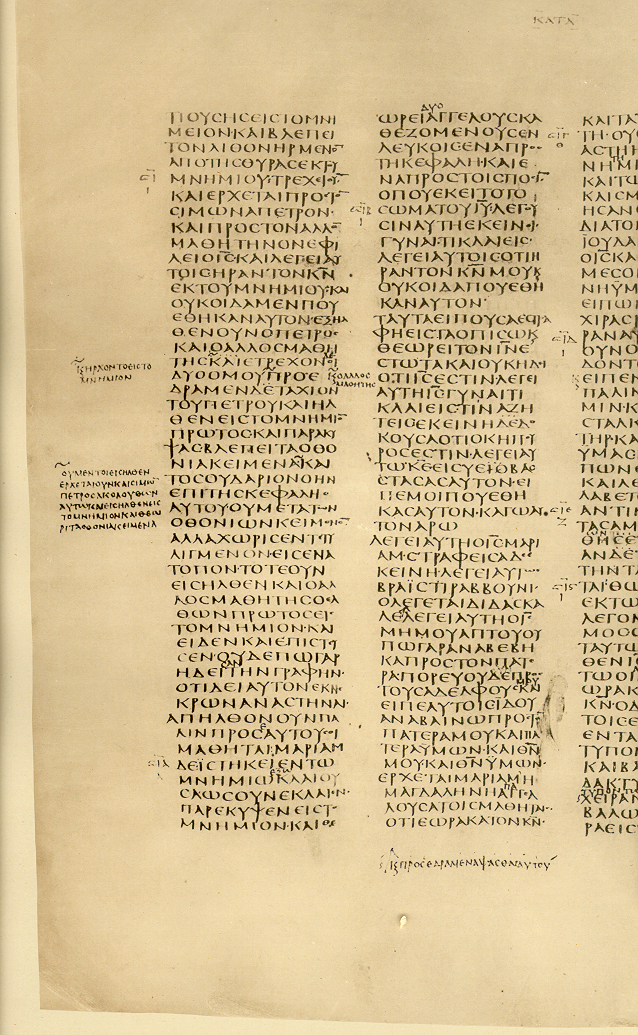 ΚΑΤΑ
ΠΟΥCΗCΕΙCΤΟΜΝΙ
ΜΕΙΟΝ·ΚΑΙΒΛΕΠΕΙ
ΤΟΝΛΙΘΟΝΗΡΜΕΝΟ̅
ΑΠΟΤΗCΘΥΡΑCΕΚΤΥ
ΜΝΗΜΙΟΥ·ΤΡΕΧΕΙΟΥ̅
ΚΑΙΕΡΧΕΤΑΙΠΡΟΤΟ̅
CΙΜΩΝΑΠΕΤΡΟΝ·
ΚΑΙΠΡΟCΤΟΝΑΛΛΟ̅
ΜΑΘΗΤΗΝΟΝΕΦΙ
ΛΕΙΟΙ̅C̅ΚΑΙΛΕΓΕΙΑΥ
ΤΟΙCΗΡΑΝΤΟΝΚ̅Ν̅
ΕΚΤΟΥΜΝΗΜΙΟΥ·ΚΑΙ
ΟΥΚΟΙΔΑΜΕΝΠΟΥ
ΕΘΗΚΑΝΑΥΤΟΝ·ΕΞΗΛ
ΘΕΝΟΥΝΟΠΕΤΡΟC
ΚΑΙΟΑΛΛΟCΜΑΘΗ
ΤΗC·ΚΑΙΕΤΡΕΧΟΝΟΙ
ΔΥΟΟΜΟΥΠΡΟΕ
ΔΡΑΜΕΝΔΕΤΑΧΙΟΝ
ΤΟΥΠΕΤΡΟΥΚΑΙΗΛ
ΘΕΝΕΙCΤΟΜΝΗΜΙΟ̅
ΠΡΩΤΟCΚΑΙΠΑΡΑΚΥ
ΨΑCΒΛΕΠΕΙΤΑΟΘΟ
ΝΙΑΚΕΙΜΕΝΑΚΑΙ
ΤΟCΟΥΔΑΡΙΟΝΟΗΝ
ΕΠΙΤΗCΚΕΦΑΛΗC
ΑΥΤΟΥΟΥΜΕΤΑΤΩΝ
ΟΘΟΝΙΩΝΚΕΙΜΕΝΟ̅
ΑΛΛΑΧΩΡΙCΕΝΤΥ
ΛΙΓΜΕΝΟΝΕΙCΕΝΑ
ΤΟΠΟΝ·ΤΟΤΕΟΥΝ
ΕΙCΗΛΘΕΝΚΑΙΟΑΛ
ΛΟCΜΑΘΗΤΗCΟΕΛ
ΘΩΝΠΡΩΤΟCΕΙC
ΤΟΜΝΗΜΙΟΝ·ΚΑΙ
ΕΙΔΕΝΚΑΙΕΠΙCΤΥ
CΕΝ·ΟΥΔΕΠΩΓΑΡ
ΗΔΕΙΤΗΝΓΡΑΦΗΝ·
ΟΤΙΔΕΙΑΥΤΟΝΕΚΝΕ
ΚΡΩΝΑΝΑCΤΗΝΑΙ·
ΑΠΗΛΘΟΝΟΥΝΠΑ
ΛΙΝΠΡΟCΑΥΤΟΥCΟΙ
ΜΑΘΗΤΑΙ·ΜΑΡΙΑΜ
ΔΕΙCΤΗΚΕΙΕΝΤΩ
ΜΝΗΜΙΩΚΛΑΙΟΥ
CΑΩCΟΥΝΕΚΛΑΙΕΝ·
ΠΑΡΕΚΥΨΕΝΕΙCΤΟ
ΜΝΗΜΙΟΝ·ΚΑΙΘΕ
ΟΑΛΛΟC
ΜΑΘΗΤΗC
ΚΑΙΗΡΧΟΝΤΟΕΙCΤΟ
ΜΝΗΜΙΟΝ
ΟΥΜΕΝΤΟΙΕΙCΗΛΘΕΝ
ΕΡΧΕΤΑΙΟΥΝΚΑΙCΙΜΩ̅
ΠΕΤΡΟCΑΚΟΛΟΥΘΩΝ
ΑΥΤΩΚΑΙΕΙCΗΛΘΕΝΕΙC
ΤΟΜΝΗΜΙΟΝΚΑΙΘΕΩ
ΡΙΤΑΟΘΟΝΙΑΚΕΙΜΕΝΑ
ΔΥΟ
ΩΡΕΙΑΓΓΕΛΟΥCΚΑ
ΘΕΖΟΜΕΝΟΥCΕΝ
ΛΕΥΚΟΙCΕΝΑΠΡΟC
ΤΗΚΕΦΑΛΗ·ΚΑΙΕ
ΝΑΠΡΟCΤΟΙCΠΟCΙ̅
ΟΠΟΥΕΚΕΙΤΟΤΟ
CΩΜΑΤΟΥΙ̅Υ̅·ΛΕΓΟΥ
CΙΝΑΥΤΗΕΚΕΙΝΟΙ·
ΓΥΝΑΙΤΙΚΛΑΙΕΙC·
ΛΕΓΕΙΑΥΤΟΙCΟΤΙΗ
ΡΑΝΤΟΝΚ̅Ν̅ΜΟΥΚ
ΟΥΚΟΙΔΑΠΟΥΕΘΗ
ΚΑΝΑΥΤΟΝ·
ΤΑΥΤΑΕΙΠΟΥCΑΕCΤΡΑ
ΦΗΕΙCΤΑΟΠΙCΩΚ
ΘΕΩΡΕΙΤΟΝΙ̅Ν̅Ε
CΤΩΤΑΚΑΙΟΥΚΗΔΙ
ΟΤΙΙ̅C̅ΕCΤΙΝΛΕΓΕΙ
ΑΥΤΗΙ̅C̅ΓΥΝΑΙΤΙ
ΚΛΑΙΕΙCΤΙΝΑΖΗ
ΤΕΙCΕΚΕΙΝΗΔΕΔΟ
ΚΟΥCΑΟΤΙΟΚΗΠΟΥ
ΡΟCΕCΤΙΝ·ΛΕΓΕΙΑΥ
ΤΩΚ̅Ε̅ΕΙCΥΕΙΟΒΑC
CΤΑCΑCΑΥΤΟΝ·ΕΙ
ΠΕΜΟΙΠΟΥΕΘΗ
ΚΑCΑΥΤΟΝ·ΚΑΓΩΑΥ
ΤΟΝΑΡΩ
ΛΕΓΕΙΑΥΤΗΟΙ̅C̅ΜΑΡΙ
ΑΜ·CΤΡΑΦΕΙCΑΔΕ
ΚΕΙΝΗ·ΛΕΓΕΙΑΥΤΩ
ΒΡΑΪCΤΙΡΑΒΒΟΥΝΙ·
ΟΛΕΓΕΤΑΙΔΙΔΑCΚΑ
ΛΕΛΕΓΕΙΑΥΤΗΟΙ̅C̅
ΜΗΜΟΥΑΠΤΟΥΟΥ
ΠΩΓΑΡΑΝΑΒΕΒΗ
ΚΑΠΡΟCΤΟΝΠΑ̅Τ̅Ρ̅Α̅·
ΠΟΡΕΥΟΥΔΕΠΡΟC
ΤΟΥCΑΔΕΛΦΟΥCΚΑΙ
ΕΙΠΕΑΥΤΟΙCΪΔΟΥ
ΑΝΑΒΑΙΝΩΠΡΟCΤΟ̅
ΠΑΤΕΡΑΜΟΥΚΑΙΠΑ
ΤΕΡΑΥΜΩΝ·ΚΑΙΘ̅Ν̅
ΜΟΥΚΑΙΘ̅Ν̅ΥΜΩΝ·
ΕΡΧΕΤΑΙΜΑΡΙΑΜΗ
ΜΑΓΔΑΛΗΝΗΑΓΓΕΛ
ΛΟΥCΑΤΟΙCΜΑΘΗΤΑΙC·
ΟΤΙΕΩΡΑΚΑΤΟΝΚ̅Ν̅·
ΚΑΙΠΡΟCΕΔΡΑΜΕΝΑΨΑCΘΑΙΑΥΤΟΥ
ΚΑΙΤΑ
ΤΗ·ΟΥ
ΑCΤΗ
ΝΗΜΙ
ΚΑΙΤΩ
ΚΑΙCΜ
ΗCΑΝ
ΔΙΑΤΟ
ΙΟΥΔΑ
ΟΙ̅C̅ΚΑ
ΜΕCΟ
ΝΗΫΜ
ΕΙΠΩ
ΧΙΡΑC
ΡΑΝΑΥ
ΟΥΝΟ
ΔΟΝΤ
ΕΙΠΕΝ
ΠΑΛΙΝ
ΜΙΝ·Κ
CΤΑΛΚ
ΠΗΡΚΑ
ΥΜΑC
ΠΩΝΕ
ΚΑΙΛΕ
ΛΑΒΕΤ
ΑΝΤΙΝ
ΤΑCΑΜ
ΘΗCΕ
ΑΝΔΕ
ΤΗΝΤΑ
ΤΑΙΘΩ
ΕΚΤΩ
ΛΕΓΟΜ
ΜΟCΟ
ΤΑΥΤΩ
ΘΕΝΙ̅
ΤΩΟΙ
ΩΡΑΚ
Κ̅Ν̅·ΟΔ
ΤΟΙCΕ
ΕΝΤΑ
ΤΥΠΟ
ΚΑΙΒΑ
ΔΑΚΤΥ
ΧΕΙΡΑΝ
ΒΑΛΩ
ΡΑΕΙC